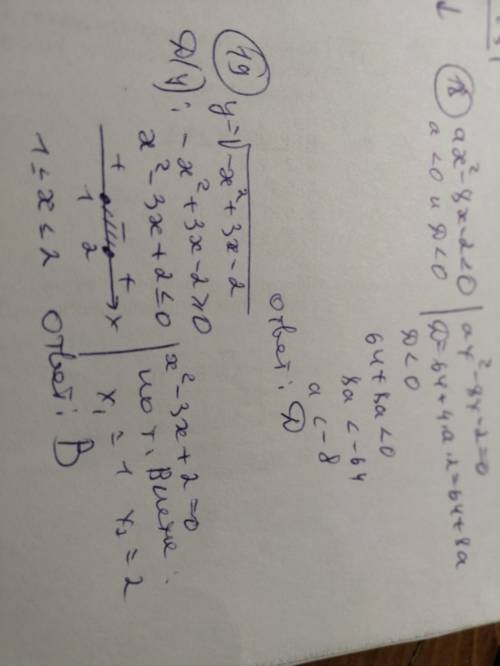 18 ax²-8x-2<0 | ax²-8x-2=0
a<0 и D<0 | D=64+4a·2=64+8a
D<0
64+8a<0
8a<-64
a<-8
Ответ: D
19 y=√-x²+3x-2
D(y): -x²+3x-2≥0
x²-3x+2≤0
x²-3x+2=0
по т. Виета:
x₁=1 x₂=2
+ - +
1 2 x
1≤x≤2 Ответ: B